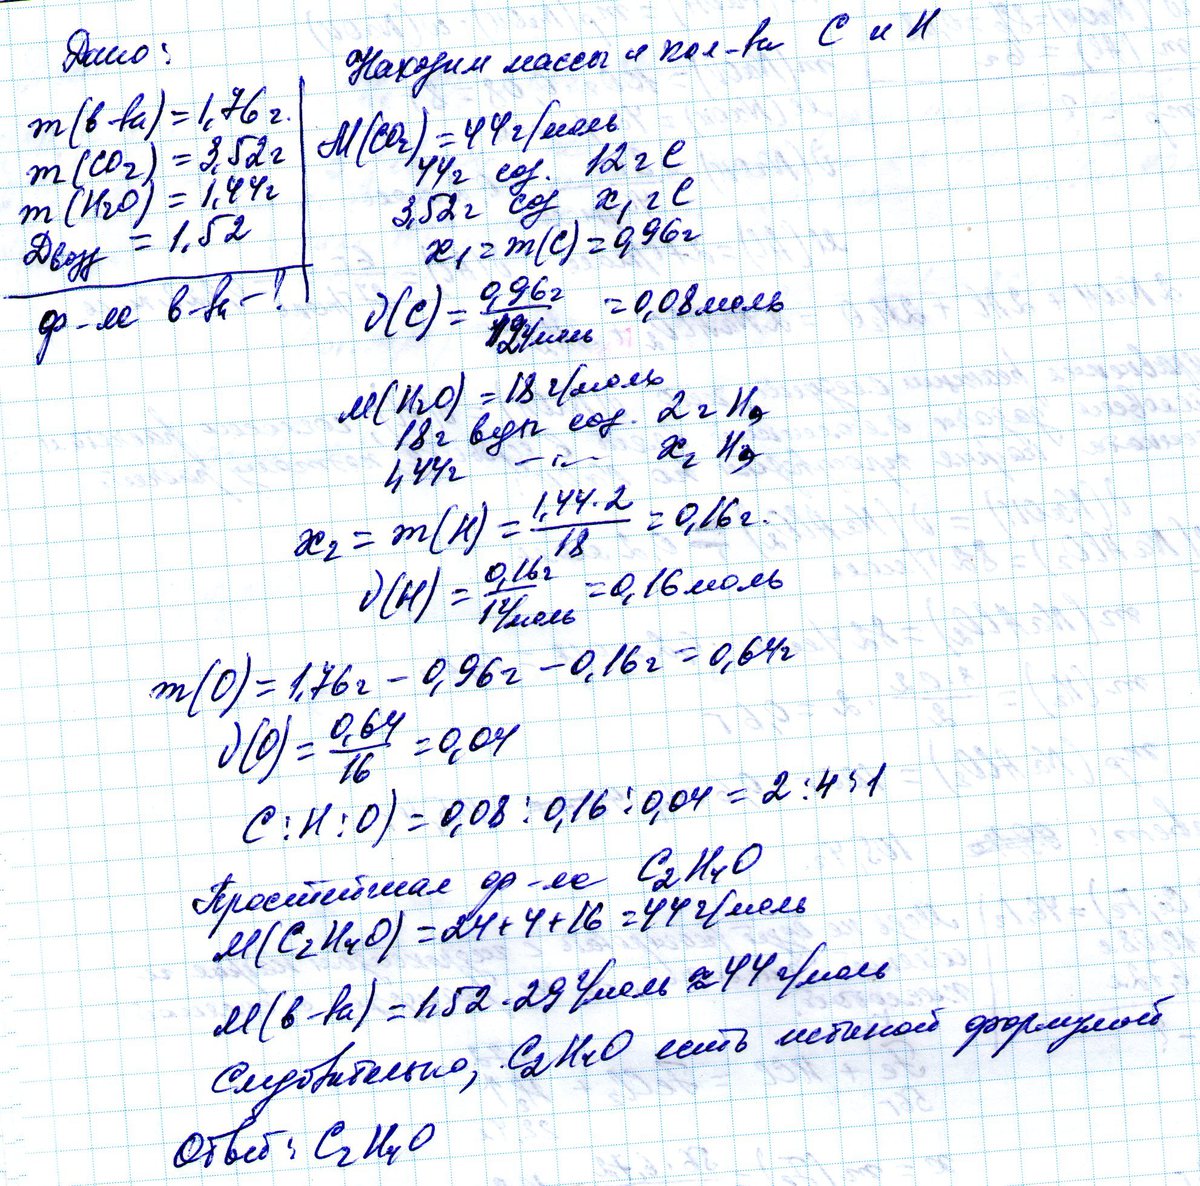 Дано:
m(в-ва) = 1,76 г.
m(CO2) = 3,52 г
m(H2O) = 1,44 г
Dвозд = 1.52
ф-ла в-ва - ?
Находим массы и кол-ва C и H
M(CO2) = 44 г/моль
44 г сод. 12 г C
3,52 г сод x1 г C
x1 = m(C) = 0,96 г
ν(C) = 0,96 г / 12 г/моль = 0,08 моль
M(H2O) = 18 г/моль
18 г воды сод. 2 г H
1,44 г -"- x2 H
x2 = m(H) = 1,44·2 / 18 = 0,16 г.
ν(H) = 0,16 г / 1 г/моль = 0,16 моль
m(O) = 1,76 г - 0,96 г - 0,16 г = 0,64 г
ν(O) = 0,64 / 16 = 0,04
C : H : O) = 0,08 : 0,16 : 0,04 = 2 : 4 : 1
Простейшая ф-ла C2H4O
M(C2H4O) = 24 + 4 + 16 = 44 г/моль
M(в-ва) = 1.52 · 29 г/моль ≈ 44 г/моль
Следовательно, C2H4O есть истиной формулой
Ответ: C2H4O